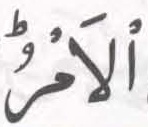 الْاَمْرُؕ